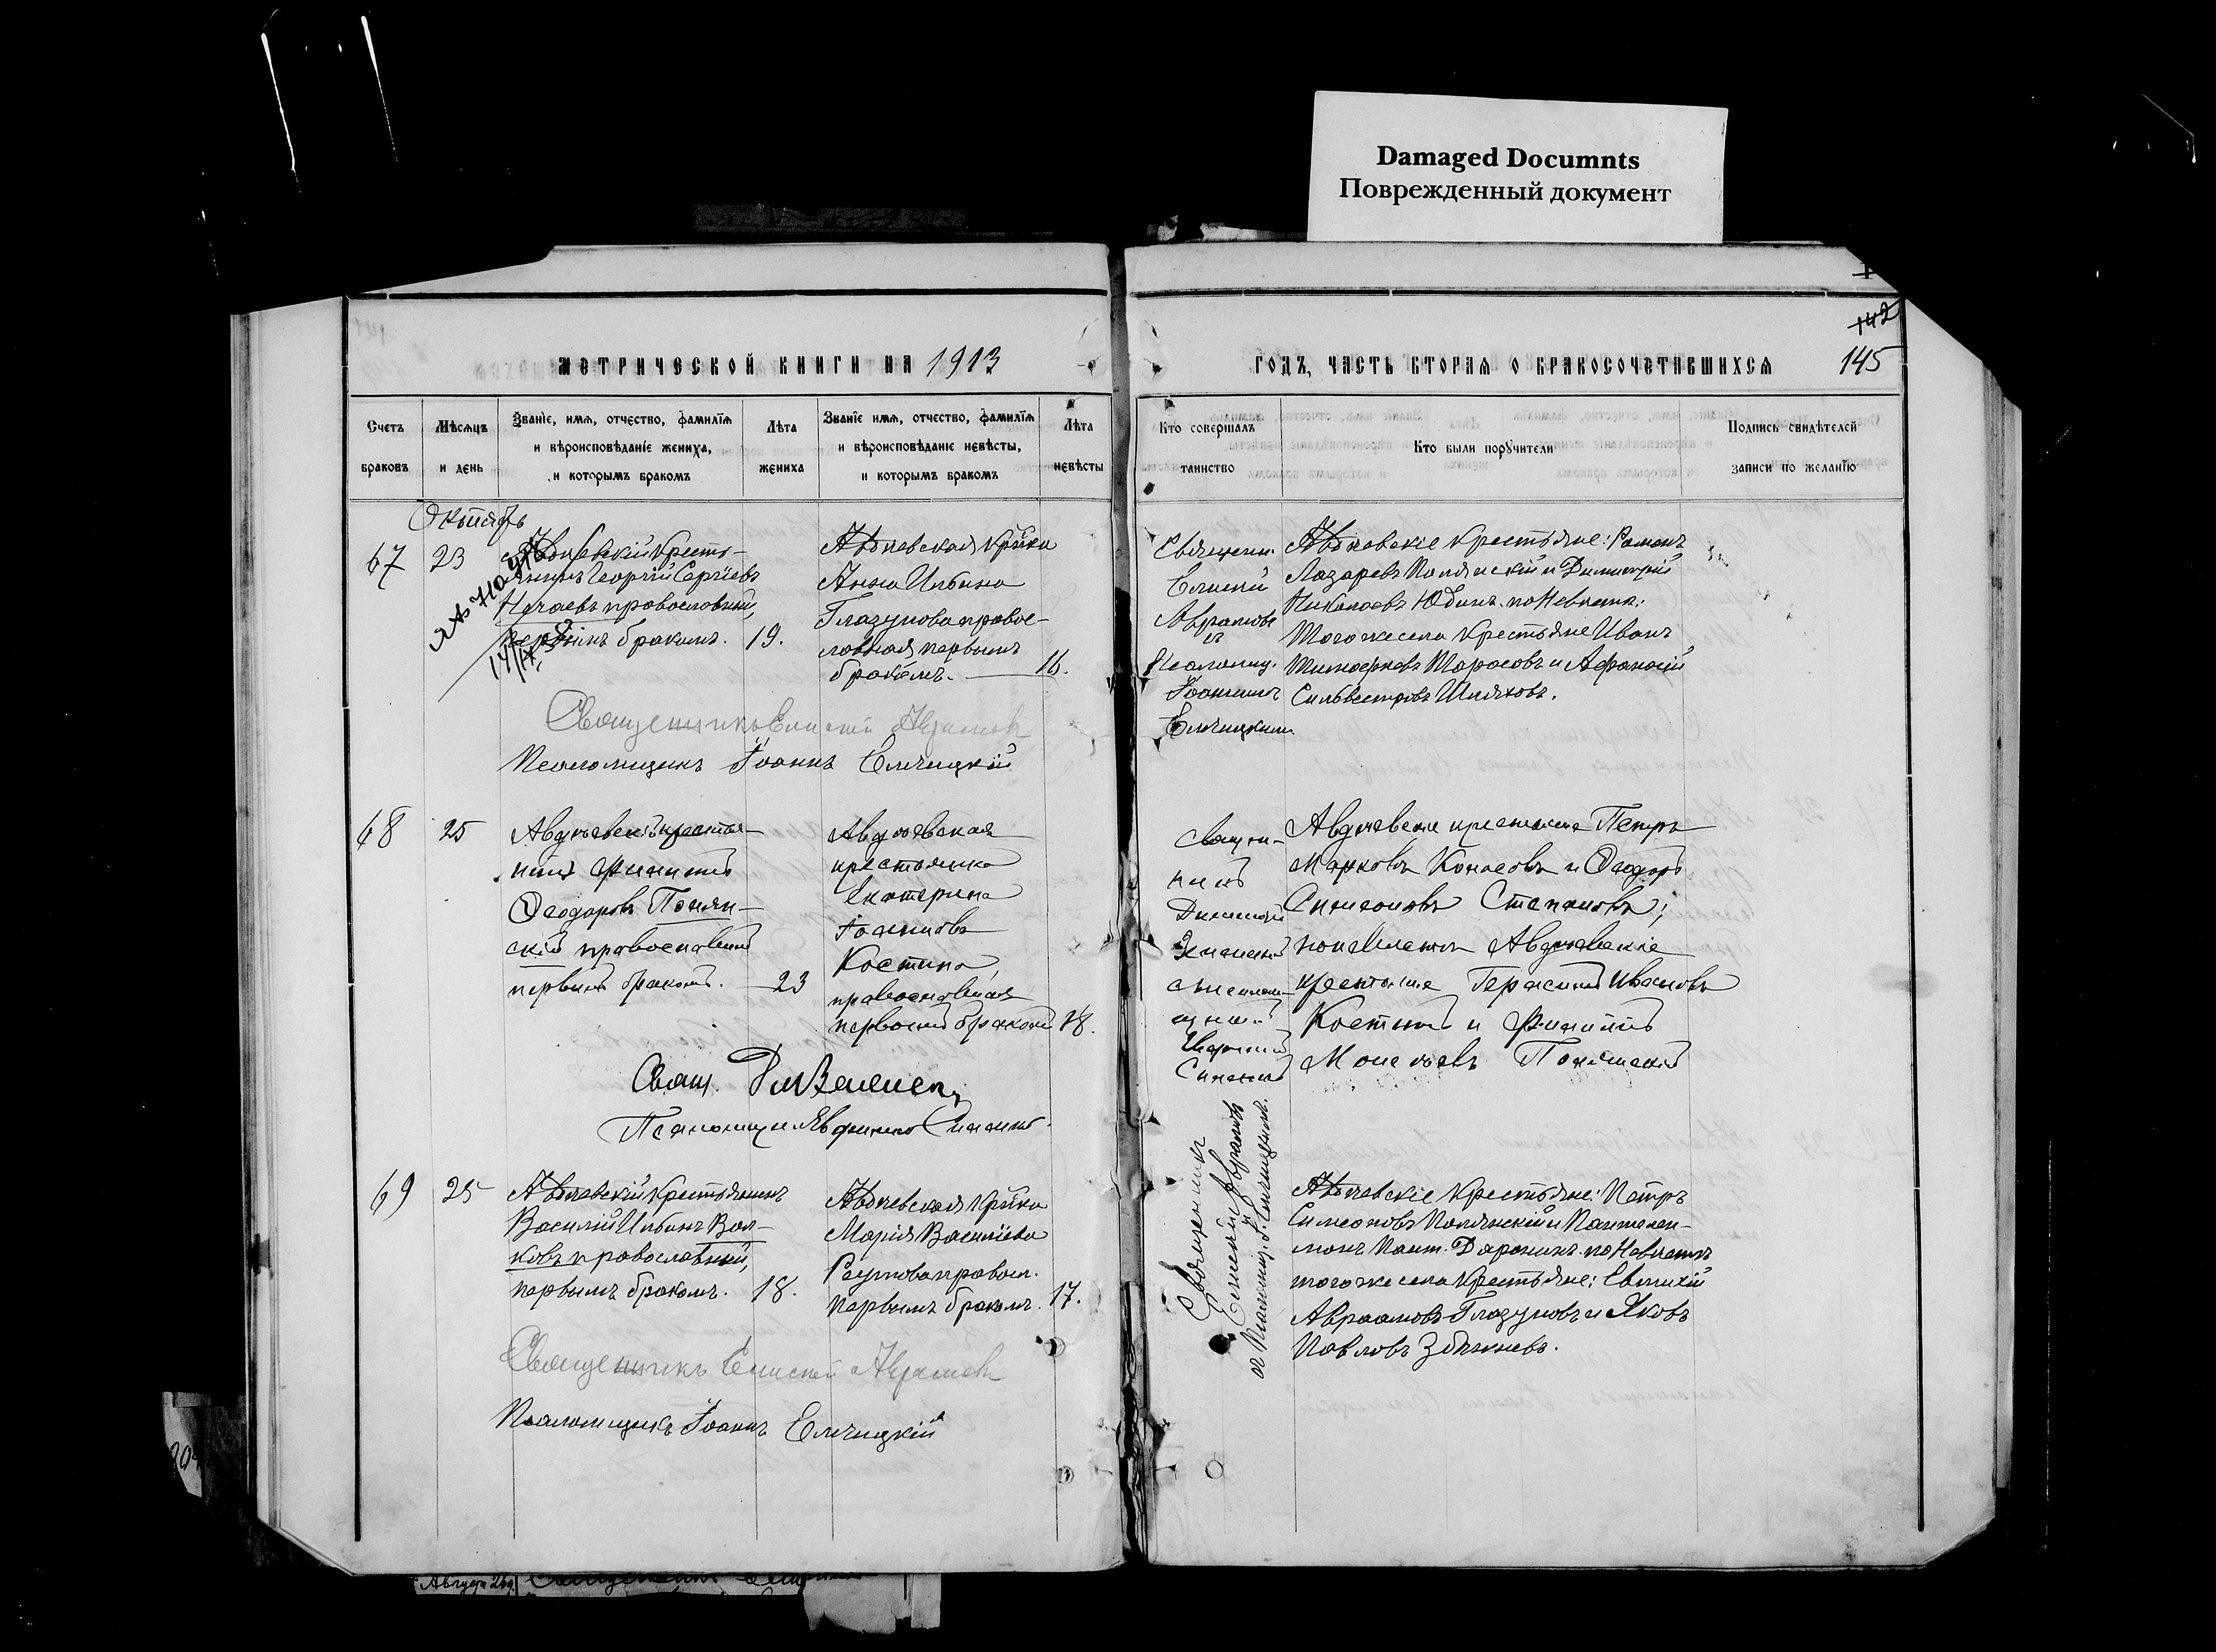 Damaged Documnts
Поврежденный документ
142
145
МЕТРИЧЕСКОЙ КНИГИ НА 1913
ГОДЪ, ЧАСТЬ ВТОРАЯ О БРАКОСОЧЕТАВШИХСЯ
Счетъ браковъ
Мѣсяцъ и день
Званіе, имя, отчество, фамилія
и вѣроисповѣданіе жениха,
и которымъ бракомъ
Лѣта жениха
Званіе имя, отчество, фамилія
и вѣроисповѣданіе невѣсты,
и которымъ бракомъ
Лѣта невѣсты
Кто совершалъ
таинство
Кто были поручители
Подпись свидѣтелей
записи по желанію
Октябрь
67
23
Авдѣевскій кресть-
янинъ Георгій Сергіевъ
Нечаевъ православный,
первымъ бракомъ.
19.
Авдѣевская кр-нка
Анна Ильина
Глазунова право-
славная первымъ
бракомъ.
16.
Священн.
Елисей
Авраамовъ
и
Псаломщ.
Іоанномъ
Елечицкимъ
Авдѣевскіе крестьяне: Романъ
Лазаревъ Полянскій и Димитрій
Николаевъ Юдинъ. по невѣстѣ:
того же села крестьяне Иванъ
Тимофеевъ Тарасовъ и Афанасій
Сильвестровъ Шляховъ.
Священникъ Елисей Авраамовъ
Псаломщикъ Іоаннъ Елечицкій
68
25
Авдѣевскій крестья-
нинъ Филиппъ
Ѳеодоровъ Полян-
скій православный
первымъ бракомъ.
23
Авдѣевская
крестьянка
Екатерина
Іоаннова
Костина,
православная
первымъ бракомъ
18.
Священ-
никъ
Димитрій
съ псалом-
щикомъ
Авдѣевскіе крестьяне Петръ
Марковъ и Ѳеодоръ
Симеоновъ Степановъ;
по невѣстѣ Авдѣевскіе
крестьяне Герасимъ Ивановъ
Костинъ и Филиппъ
Моисеевъ Полянскій
Свящ.
Псаломщикъ
69
25
Авдѣевскій крестьянинъ
Василій Ильинъ Вол-
ковъ православный,
первымъ бракомъ.
18.
Авдѣевская кр-нка
Марія Василіева
Реутова правосл.
первымъ бракомъ.
17.
Священникъ
Елисей Авраамовъ
и Псаломщ. І. Елечицкимъ.
Авдѣевскіе крестьяне: Петръ
Симеоновъ Полянскій и Пантелеи-
монъ Пант. Доронинъ. по невѣстѣ
того же села крестьяне: Евтихій
Авраамовъ Глазуновъ и Яковъ
Павловъ
Священникъ Елисей Авраамовъ
Псаломщикъ Іоаннъ Елечицкій